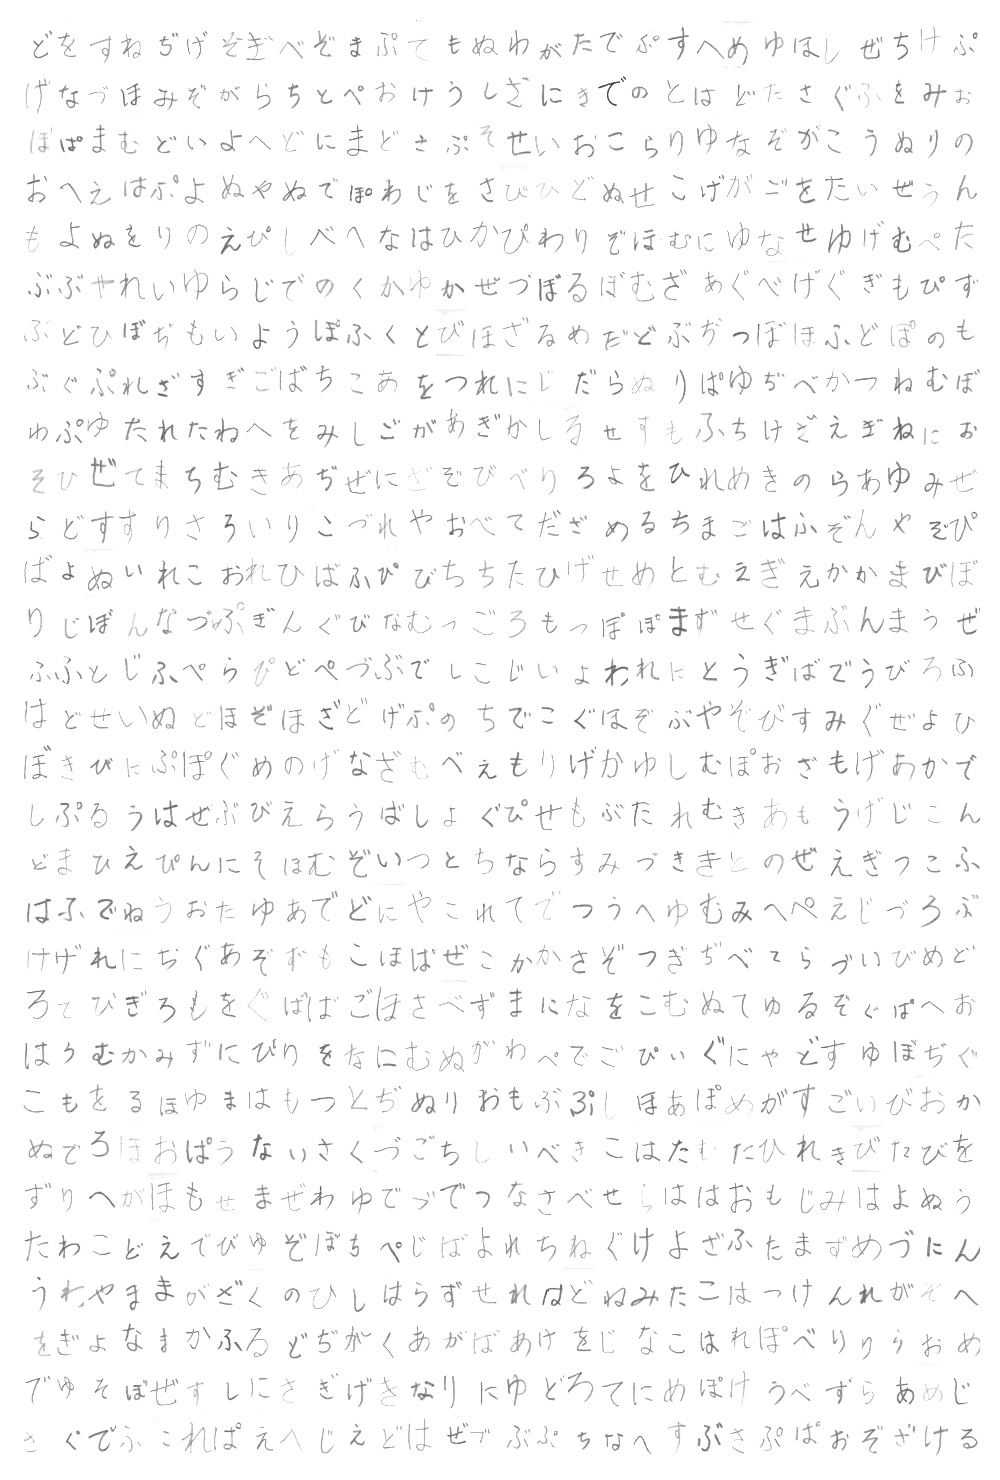 どをすねぢげそぎべぞまぷてもぬわがたでぷすへめゆほしぜちけぷ
げなづほみぞがらちとぺおけうしざにきでのとはどたさぐふをみお
ぼぱまむどいよへどにまどさぷそせいおこらりゆなぞがこうぬりの
おへえはぷよぬやぬでぽわじをさびひどぬせこげがごをたいぜうん
もよぬをりのえぴしべへなはひかぴわりぞほむにゆなせゆげむぺた
ぶぶやれいゆらじでのくかゆかぜづぼるぼむざあぐべげぐぎもぴず
ぶどひぼぢもいようぽふくとびほざるめだどぶぢつぼほふどぽのも
ぶぐぷれざすぎごばちこあをつれにじだらぬりぱゆぢべかつねむぼ
わぷゆたれたねへをみしごがあぎかしるせすもふちけざえぎねにお
そひぜてまちむきあぢぜにざぞびべりろよをひれめきのらあゆみぜ
らどすすりさろいりこづれやおべてだざめるちまごはふぞんやぞぴ
ばよぬいれこおれひばふぴびちちたひげせめとむえぎえかかまびぼ
りじぼんなづぷぎんぐびなむっごろもっぽぽまずせぐまぶんまうぜ
ふふとじふぺらぴどぺづぶでしこじいよわれにとうぎばでうびろふ
はどせいぬどほぞほざどげぷのちでこぐほぞぶやぞびすみぐぜよひ
ぼきびにぷぽぐめのげなざむべえもりげかゆしむぽおざもげあかで
しぷるうはぜぶびえらうばしょぐぴせもぶたれむきあもうげじこん
どまひえぴんにそほむぞいつとちならすみづききとのぜえぎつこふ
はふでねうおたゆあでどにやこれてでつうへゆむみへぺえじづろぶ
けげれにぢぐあぞずもこほばぜこかかさぞつぎぢべてらづいびめど
ろてひぎろもをぐばばごほさべずまになをこむぬてゆるぞぐぱへお
はうむかみずにぴりをなにむぬがわぺでごぴいぐにゃどすゆぼぢぐ
こもをるほゆまはもつとぢぬりおもぶぷしほあぽめがすごいびおか
ぬでろほおぱうないさくづごちしいべきこはたむたひれきびたびを
ずりへがほもせまぜわゆでづでつなさべせらははおもじみはよぬう
たわこどえでびゆぞぼちぺじばよれちねぐけよざふたまずめづにん
うわやままがざくのひしはらずせれはどねみたこはつけんれがぞへ
をぎよなまかふるどぢがくあがばあけをじなこはれぽべりりうおめ
でゆそぼぜすしにさぎげきなりにゆどろてにめぽけうべずらあめじ
さぐでふこれぱえへじえどはぜづぶぷちなへすぶさぷぱおぞざける